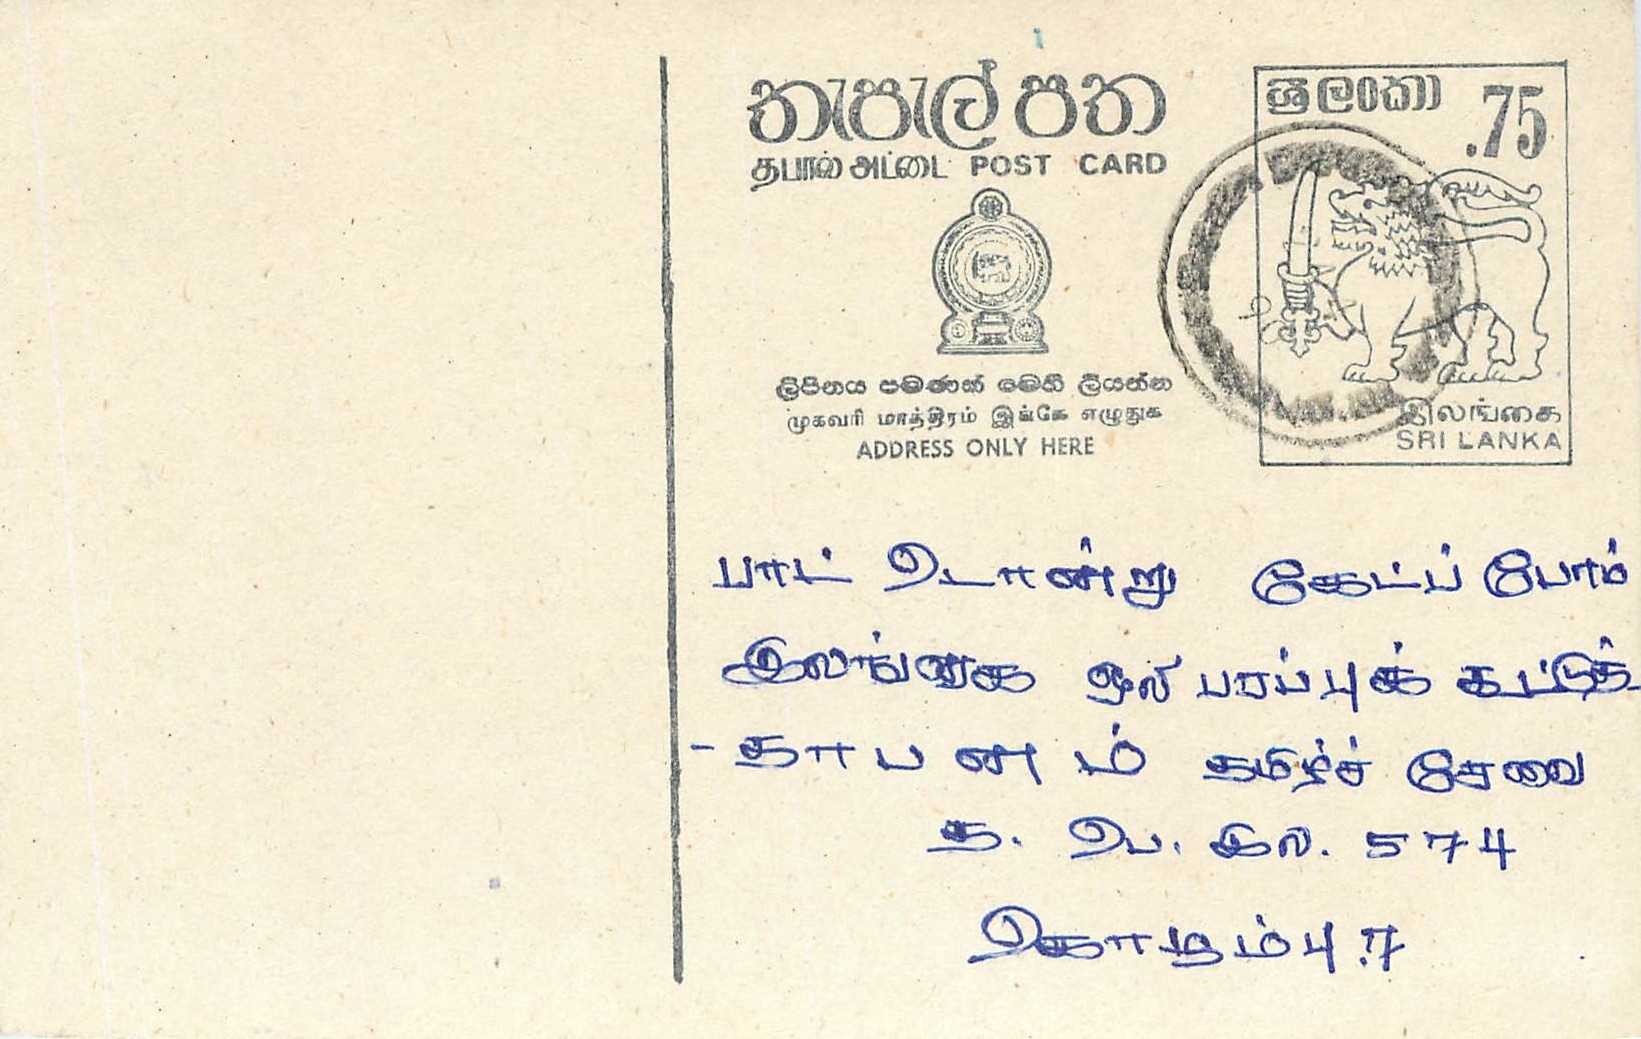 තැපැල් පත
தபால் அட்டை POST CARD
ලිපිනය පමණක් මෙහි ලියන්න
முகவரி மாத்திரம் இங்கே எழுதுக
ADDRESS ONLY HERE
ශ්‍රී ලංකා .75
இலங்கை
SRI LANKA
பாட் டொன்று கேட்ப் போம்
இலங்கை ஒலி பரப்புக் கூட்டுத்
- தாபனம் தமிழ்ச் சேவை
த. பெ. இல. 574
கொழும்பு.7